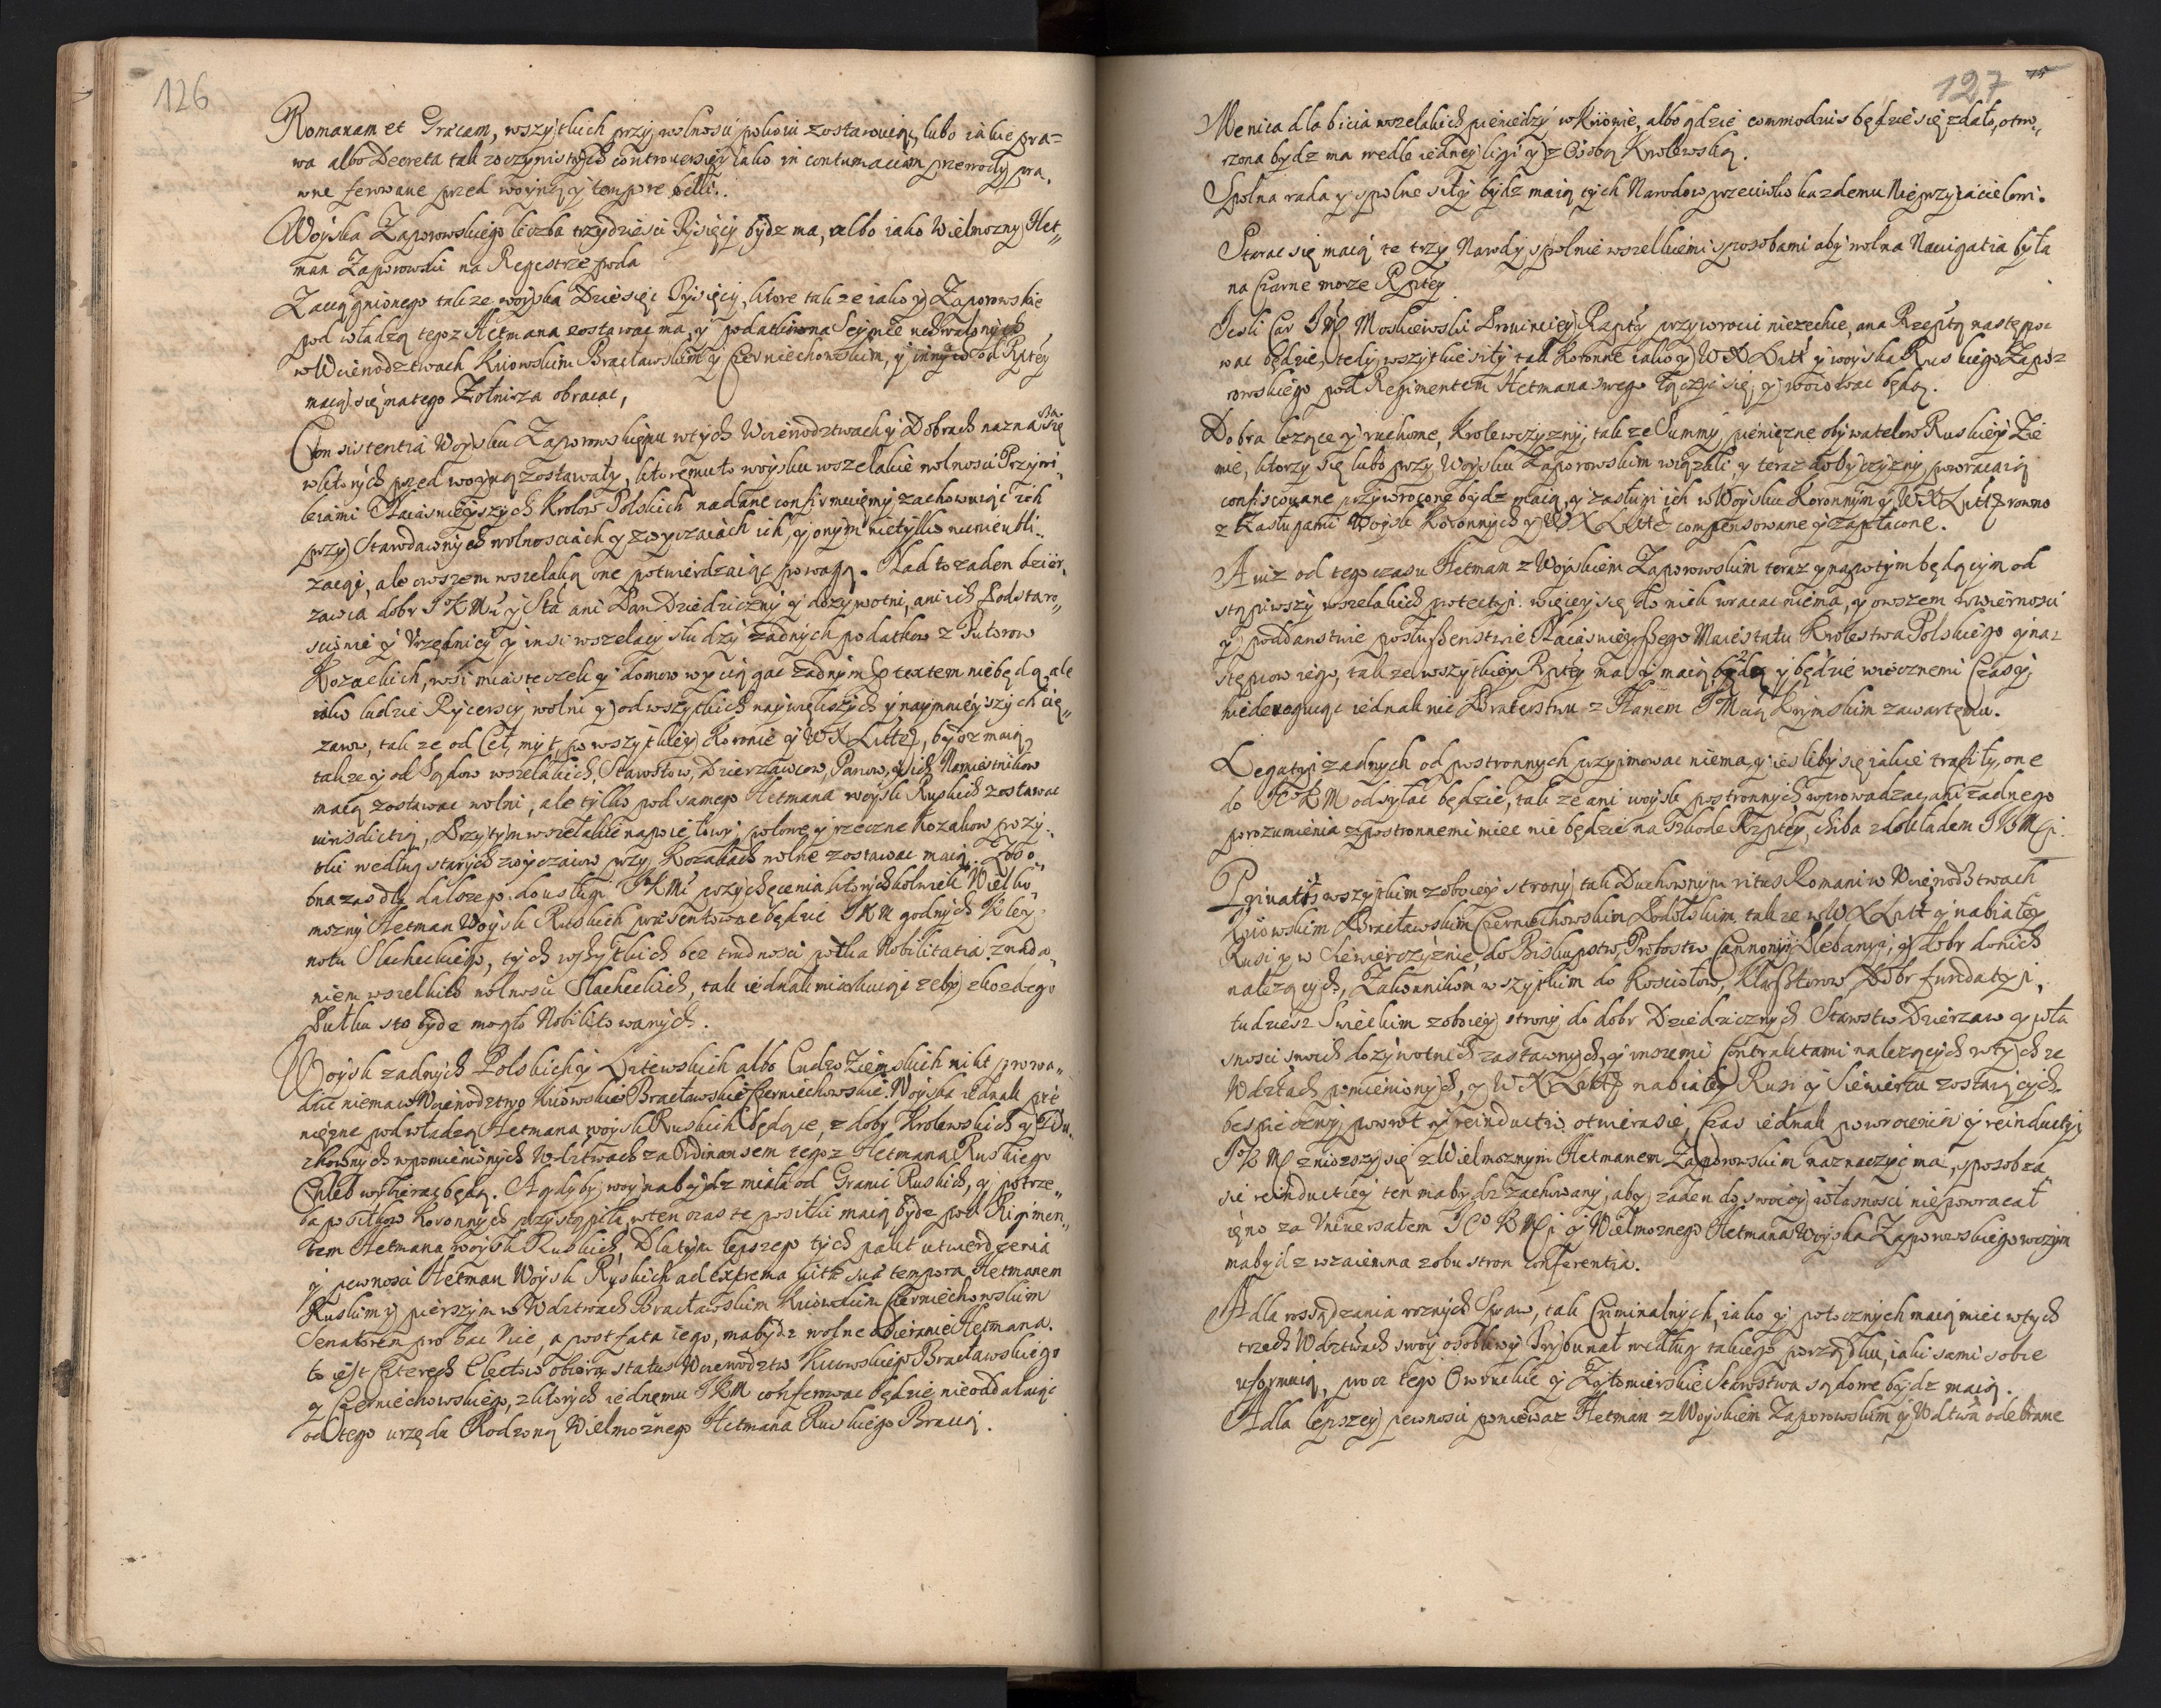 126
Romanam et Græcam, wszytkich przy wolnosci pokoiu zostawuią, lubo iakie pra=
wa albo Decreta tak zoczywistych controuersiy iako in contumaciam przewody pra„
wne ferowane przed woyną y tempore belli.
Woyska Zaporowskiego liczba trzydziesci Tysięcy bydz ma, albo iako Wielmozny Het„
man Zaporowski na Regestrze poda
Zaciągnionego takze woyska Dziesięc Tysięcy, ktore takze iako y Zaporowskie
pod władzą tegoz Hetmana zostawac ma, y podatki na Seymie uchwalonych
w Wdienodztwach Kiiowskim Bracławskim y Czerniechowskim, y innych od Rptey
maią się na tego Zołnierza obracac,
Consistentia Woysku Zaporowskiemu w tych Woienodztwach y Dobrach naznacza się
w ktorych przed woyną zostawały, ktoremu to woysku wszelakie wolnosci Przywi„
leiami Naiasnieyszych Krolow Polskich nadane confirmuiemy zachowuiąc ich
przy Starodawnych wolnosciach y zwyczaiach ich, y onym nietylko nieruienkli„
zaiąc, ale owszem wszelaką one potwierdzaiąc powagą. Nad to zaden dzier„
zawca dobr J K Mci y Sta ani Pan Dziedziczny y dozywotni, ani ich Podstaro„
sciowie y Vrzędnicy y insi wszelacy słudzy zadnych podatkow z Futorow
Kozackich, wsi miasteczek y domow wyciągac zadnym prætextem niebędą, ale
iako ludzie Rycerscy wolni y od wszytkich naywiększych y naymnieyszych cię„
zarow, takze od Ceł, myt, po wszytkiey Koronie y W X Litte, bydz maią,
takze y od Sądow wszelakich, Starostow, Dzierzawcow, Panow, y ich Namiestnikow
maią zostawac wolni, ale tylko pod samego Hetmana woysk Ruskich zostawac
iurisdictią, Przytym wszelakie napoie, łowy polowe y rzeczne Kozakow pozy„
tki według starych zwyczaiow przy Kozakach wolne zostawac maią. Zoso„
bna zas dla dalszego do usługi J K Mci przychęcenia ktorychkolwiek Wielko„
mozny Hetman Woysk Ruskich præsentowac będzie J K M godnych Kley„
notu Slacheckiego, tych wszytkich bez trudnosci potka Nobilitatia z nada„
niem wszelkich wolnosci Slacheckich, tak iednak miarkuiąc zeby z kozdego
Pułku sto bydz mogło Nobilitowanych.
Woysk zadnych Polskich y Litewskich albo Cudzoziemskich nikt prowa„
dzic niema w Woienodztwo Kiiowskie Bracławskie Czerniechowskie. Woyska iednak pie„
niężne pod władzą Hetmana woysk Ruskich będące, z dobr Krolewskich y Du„
chownych wpomienionych Wdztwach za Ordinansem tegoz Hetmana Ruskiego
Chleb wybierac będą. A gdyby woyna bydz miała od Granic Ruskich, y potrze„
ba posiłkow Koronnych przystąpiła, w ten czas te posiłki maią bydz pod Rigimen„
tem Hetmana woysk Ruskich, Dla tym lepszego tych pakt utwierdzenia
y pewnosci Hetman Woysk Ruskich ad extrema vitæ suæ tempora Hetmanem
Ruskim y pierszym w Wdztwach Bracławskim Kiiowskim Czerniechowskim
Senatorem pro hac vice, a post fata iego, ma bydz wolne obieranie Hetmana.
to iest Czterech Electow obiorą status Woienodztw Kiiowskiego Bracławskiego
y Czerniechowskiego, z ktorych iednemu J K M conferowac będzie nieoddalaiąc
od tego urzędu Rodzoną Wielmoznego Hetmana Ruskiego Bracią.
127
Menica dla bicia wszelakich pieniedzy w Kiiowie, albo gdzie commodius będzie się zdało, otwo„
rzona bydz ma wedle iedney ligi y z Osobą Krolewską.
Spolna rada y spolne siły bydz maią tych Narodow przeciwko kazdemu Nieprzyiacielowi.
Starac się maią te trzy Narody spolnie wszelkiemi sposobami aby wolna Nauigatia była
na Czarne morze Rptey
Iesli Car J M Moskiewski Prowinciey Rzpty przywrocic niezechce, a na Rzeptą następo„
wac będzie, tedy wszytkie siły tak Koronne iako y W X Litt y woyska Ruskiego Zapo„
rowskiego pod Regimentem Hetmana swego łączyc się y woiowac będą.
Dobra lezące y ruchome, Krolewszyzny, takze Summy pieniezne obywatelow Ruskiey Zie
mie, ktorzy się lubo przy Woysku Zaporowskim wiązali, y teraz do oyczyzny powracaią
confiscowane przywrocone bydz maią, y zasługi ich w Woysku Koronnym y W X Litt z rowno
z Zasługami Woysk Koronnych y W X Litte compensowane y zapłacone.
A iuz od tego czasu Hetman z Woyskiem Zaporowskim teraz y napotym będącym od
stąpiwszy wszelakich protectyi więcey się do nich wracac niema, y owszem w wiernosci
y poddanstwie posłuszenstwie Naiasnieyszego Maiestatu Krolestwa Polskiego y na„
stępcow iego, takze wszytkiey Rptey ma y maią y będzie wiecznemi Czasy,
niederoguiąc iednak nic Braterstwu z Hanem J Mcią Krymskim zawartemu.
Legatyi zadnych od postronnych przyimowac niema, y iesliby się iakie trafiły, one
do J K M odsyłac będzie, takze ani woysk postronnych wprowadzac, ani zadnego
porozumienia z postronnemi miec nie będzie na Szkode Rzptey, chiba z dokładem J K Mci.
Priuatis wszytkim z oboiey strony tak Duchownym ritus Romani w Woienodztwach
Kiiowskim Bracławskim Czerniechowskim Podolskim, takze w W X Litt y na białey
Rusi y w Siewierszyznie, do Biskupstw, Probostw Cannonyi, Plebanyi, y dobr do nich
nalezących, Zakonnikom wszytkim do Kosciołow, Klasztorow, Dobr fundatyi,
tudziesz Swieckim z oboiey strony do dobr Dziedzicznych Starostw Dzierzaw y wła
snosci swoich dozywotnich zastawnych, y inszemi Contraktami nalezących w tychze
Wdztach pomienionych, y W X Litt na białey Rusi y Siewierzu zostaiących
bespieczny powrot y reinductia otwiera się, Czas iednak powrocenia y reinductyi
J K M zniozszy się z Wielmoznym Hetmanem Zaporowskim naznaczyc ma, sposob za„
się reinductiey ten ma bydz zachowany, aby zaden do swoiey własnosci niepowracał
iędno za Vniuersałem J K Mci y Wielmoznego Hetmana Woyska Zaporowskiego w czym
ma bydz wzaiemna z obu stron conferentia.
A dla rossądzania roznych Spraw, tak Criminalnych, iako y potocznych maią miec w tych
trzech Wdztwach swoy osobliwy Trybunał według takiego porządku, iaki sami sobie
uformuią, procz tego Owruckie y Zytomierskie Starostwa sądowe bydz maią.
A dla lepszey pewnosci poniewaz Hetman z Woyskiem Zaporowskim y Wdztwa odebrane